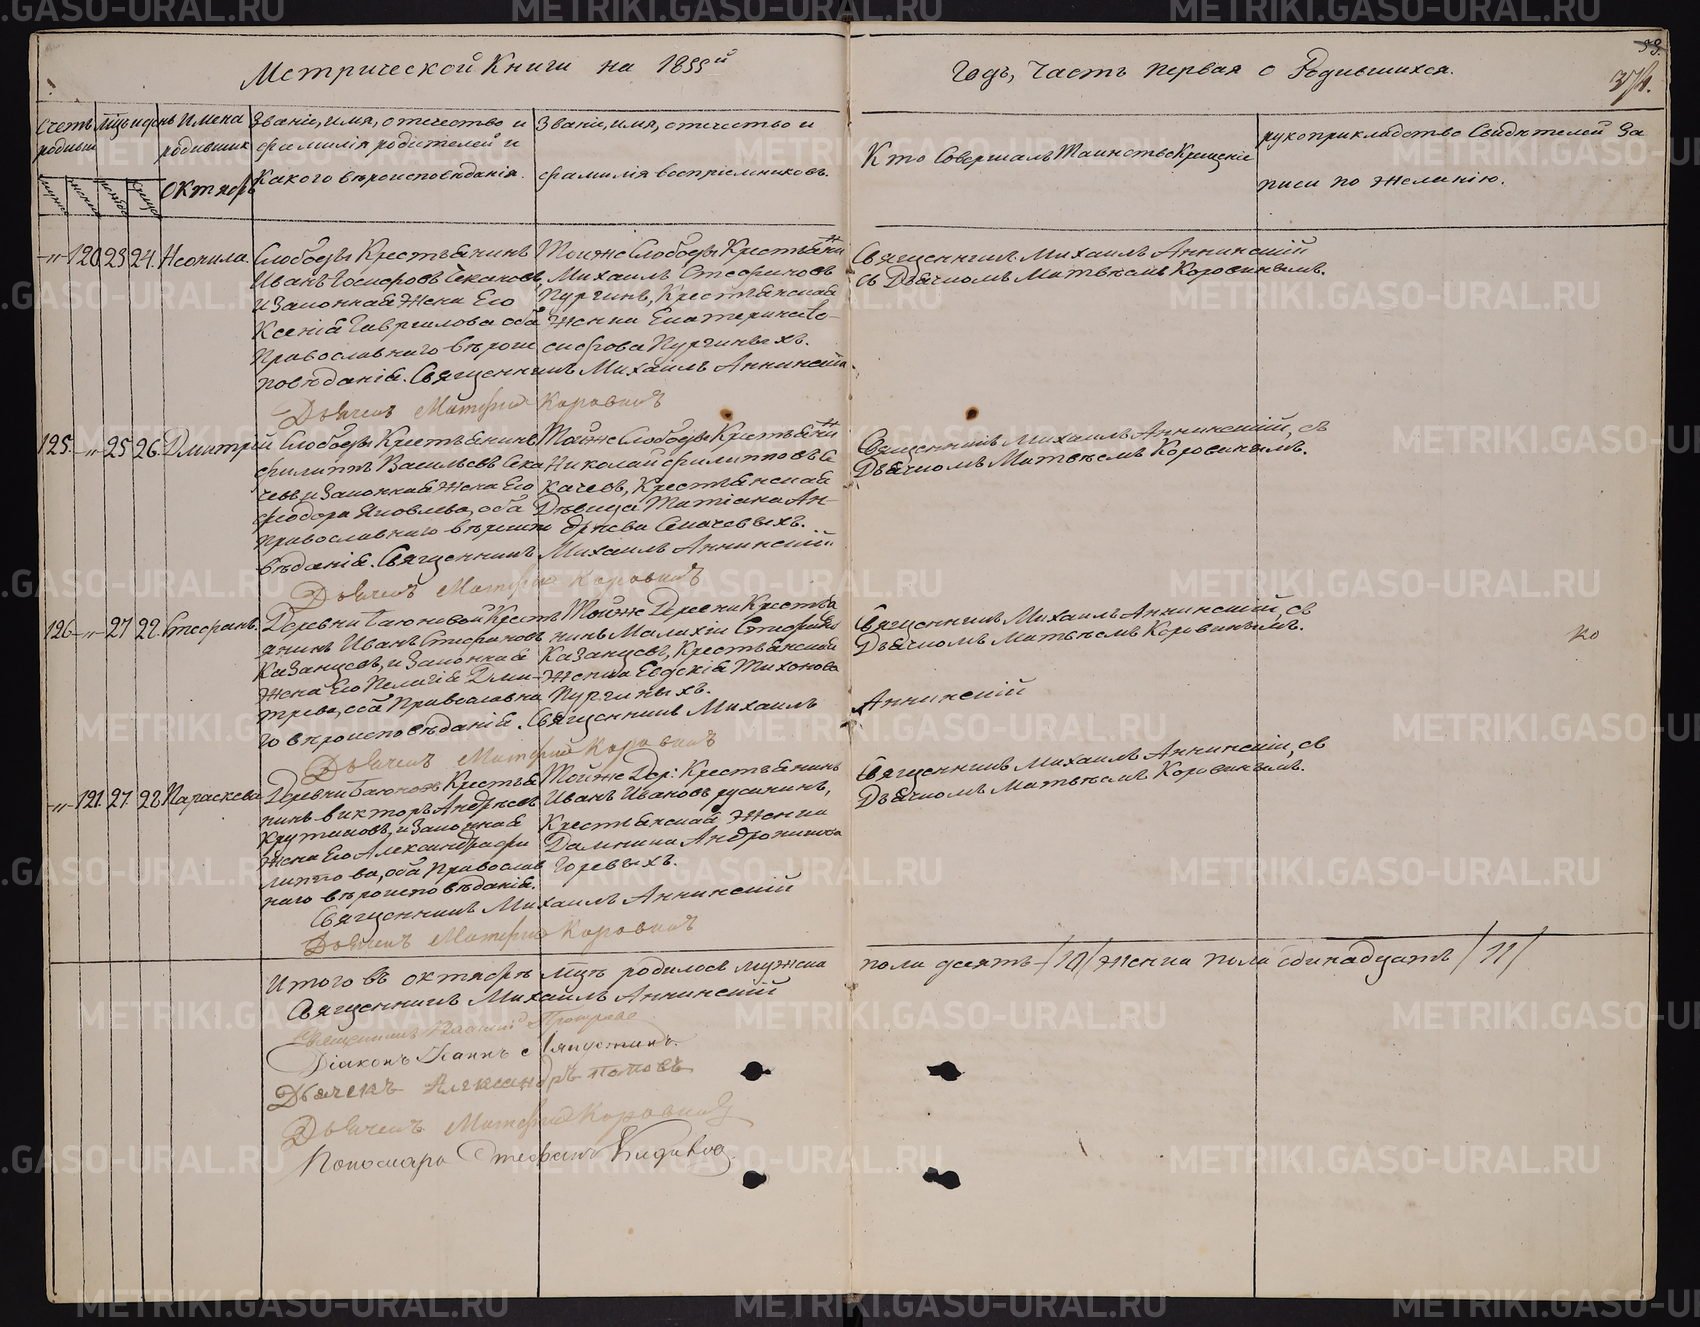 Метрической Книги на 1855й
Годъ, Часть первая о Родившихся.
Счетъ родивш
Мцъ и день
Имена родивших
Октябрь
Званіе, имя, отечество и
фамилія родителей и
Какого вѣроисповѣданія.
Званіе, имя, отечество и
фамилія воспріемниковъ.
Кто Совершалъ Таинство Крещеніе
рукоприкладство Свидѣтелей За
писи по желанію.
120 23 24 Неонила.
Слободы Крестьянинъ
Иванъ
и Законная Жена Его
Ксенія Гаврилова оба
Православнаго вѣроис
повѣданія. Священникъ Михаилъ Аннинскій.
Дьячекъ Матфій Коровинъ
Тойже Слободы Крестьяни
Михаилъ Стефановъ
Пургинъ, Крестьянская
Женка Екатерина Іо-
сифова Пургиныхъ.
Священникъ Михаилъ Аннинскій
съ Дьячкомъ Матвѣемъ Коровинымъ.
125. 25 26 Дмитрій
Слободы Крестьянинъ
Филиппъ Васильевъ Сека
чевъ и Законная Жена Его
Феодора Яковлева, оба
Православнаго вѣроиспо
вѣданія. Священникъ Михаилъ Аннинскій.
Дьячекъ Матфій Коровинъ
Тойже Слободы Крестьяни
Николай Филипповъ Се
качевъ, Крестьянская
Дѣвица Татіана Ан-
дрѣева Секачевыхъ.
Священникъ Михаилъ Аннинскій, съ
Дьячкомъ Матвѣемъ Коровинымъ.
126 27 Стефанъ.
Деревни Крестъ
янинъ Иванъ Стефановъ
Казанцевъ, и Законная
Жена Его Пелагія Дми-
тріева, оба Православна
го вѣроисповѣданія. Священникъ Михаилъ
Аннинскій
Дьячекъ Матфій Коровинъ
Тойже Деревни Крестья
нинъ Малахій Стефановъ
Казанцевъ, Крестьянская
Женка Евдокія Тихонова
Пургиныхъ.
Священникъ Михаилъ Аннинскій, съ
Дьячкомъ Матвѣемъ Коровинымъ.
121 27 28 Параскева
Деревни Крестья
нинъ Викторъ Андрѣевъ
Крутиковъ, и Законная
Жена Его Александра Фи
липпова, оба Православ
наго вѣроисповѣданія.
Священникъ Михаилъ Аннинскій
Дьячекъ Матфій Коровинъ
Тойже Дер: Крестьянинъ
Иванъ Ивановъ русининъ,
Крестьянская Женка
Домнина Андроникова
Горевыхъ.
Священникъ Михаилъ Аннинскій, съ
Дьячкомъ Матвѣемъ Коровинымъ.
Итого въ октябрѣ Мцѣ родилось мужска
пола десять /10/ женска пола одинадцать /11/
Священникъ Михаилъ Аннинскій
Діаконъ Іоаннъ Ляпустинъ.
Дьячекъ Александръ Поповъ
Дьячекъ Матфій Коровинъ
Пономарь Стефанъ
METRIKI.GASO-URAL.RU